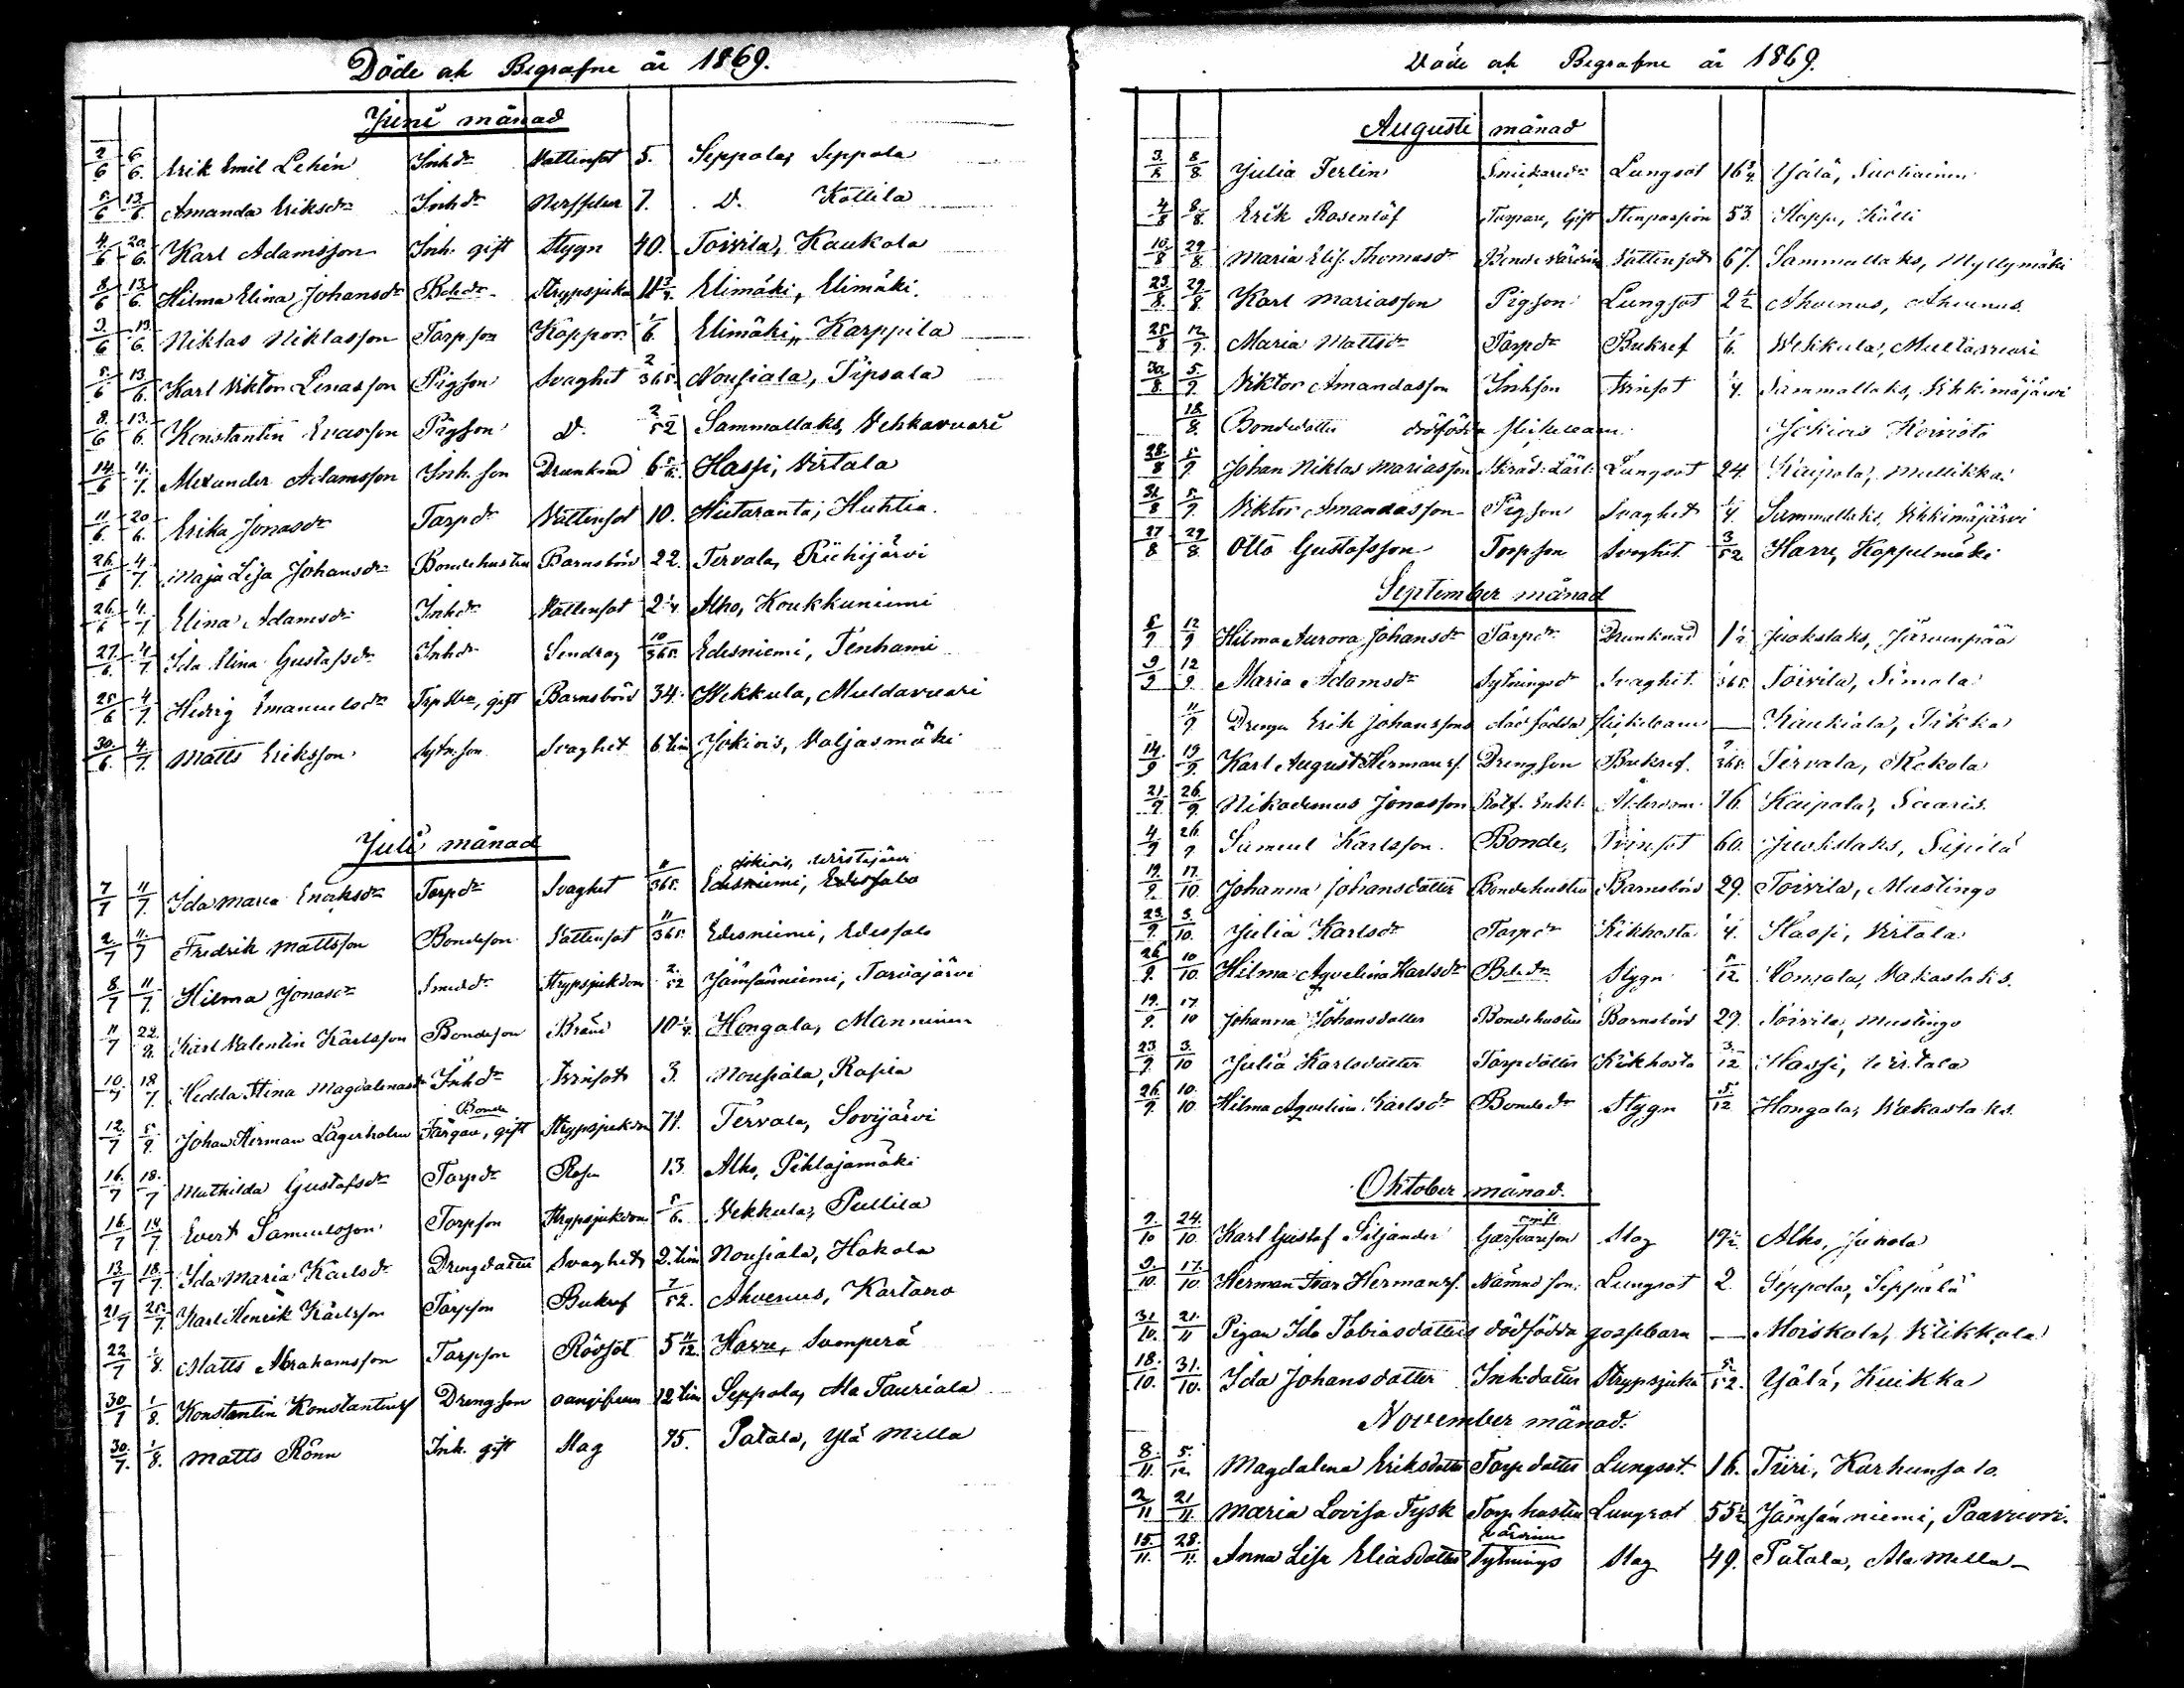 Döde och Begrafne år 1869.
Juni månad
2/6 6/6. Erik Emil Lehén Inhdr Vattensot 5. Seppola, Seppola
5/6 13/6. Amanda Eriksdr Inhdr Nerffeber 7. D. Kottila
4/6 20/6. Karl Adamsson Inh. gift Stygn 40. Toivila, Kaukola
8/6 13/6. Hilma Elina Johansdr Bdedr Strypsjuka 11 3/4. Elimäki, Elimäki.
3/6 13/6. Niklas Niklasson Torpson Koppor 1/6. Elimäki, Karppila
5/6 13/6. Karl Viktor Lenasson Pigson Svaghet 2/365. Nousiala, Tipsala
8/6 13/6. Konstantin Evasson Pigson D. 2/52 Sammallaks, Vehkavuori
14/6 4/7. Alexander Adamsson Inh. son Drunknad 6 5/12. Hassi, Virtala
11/6 20/6. Erika Jonasdr Torpdr Vattensot 10. Hiitaranta, Huhtia
26/6 4/7. Maja Lisa Johansdr Bondehustru Barnsbörd 22. Tervala, Riihijärvi
26/6 4/7. Elina Adamsdr Inhdr Vattensot 2 1/4. Alho, Koukkuniemi
27/6 4/7 Ida Elina Gustafsdr Inhdr Sendrag 10/365. Edesniemi, Tenhami
25/6 4/7. Hedvig Emanuelsdr Trp hu, gift Barnsbörd 34. Wekkula, Muldavuori
30/6. 4/7. Matts Eriksson Sytn.son Svaghet 6 tim Jokiois, Valjasmäki
Juli månad
7/7 11/7. Ida Maria Enoksdr Torpdr Svaghet 11/365. Edesniemi, Edessalo
Jokiois, Wiistajärvi
2/7 11/7 Fredrik Mattsson Bondeson Vattensot 11/365. Edesniemi, Edessalo
8/7 11/7. Hilma Jonasdr Smeddr Strypsjukdom 2/52 Jämsänniemi, Tarvajärvi
11/7 22/8. Karl Valentin Karlsson Bondeson Bränd 10 1/4. Hongola, Manninen
10/7 18/7. Hedda Stina Magdalenasdr Inhdr Tvinsot 3. Nousiala, Rapila
12/7 5/9. Johan Herman Lagerholm Färgare, gift Strypsjukdom 71. Tervala, Sovijärvi
Bonde
16/7 18/7 Mathilda Gustafsdr Torpdr Rosen 13. Alho, Pihlajamäki
16/7 18/7. Evert Samuelsson Torpson Strypsjukdom 5/6. Vekkula, Pullila
13/7 18/7. Ida Maria Karlsdr Drengdotter Svaghet 2. tim Nousiala, Hakola
21/7 25/7. Karl Henrik Karlsson Torpson Bukref 7/52. Ahvenus, Kartano
22/7 1/8. Matts Abrahamsson Torpson Rödsot 5 11/12. Harre, Suonperä
30/7 1/8. Konstantin Konstantinss Drengson oangifven 12 tim Seppola, Ala Tauriala
30/7. 1/8. Matts Rönn Inh. gift Slag 75. Patala, Ylä Mella
Döde och Begrafne år 1869.
Augusti månad
3/8 8/8. Julia Ferlin Snickaredr Lungsot 16 3/4. Yälä, Suoliainen
4/8 8/8. Erik Rosenlöf Torpare, Gift Stenpassion 53. Hoppu, Kulli
10/8 29/8. Maria Elis. Thomasdr Bondevärdin Vattensot 67. Sammallaks, Myllymäki
23/8. 29/8 Karl Mariasson Pigson Lungsot 2 1/2 Ahvenus, Ahvenus
25/8 12/9. Maria Mattsdr Torpdr Bukref 1/6. Wekkula, Multavuori
30/8. 5/9. Viktor Amandasson Inhson Tvinsot 1/4. Sammallaks, Vihkimäjärvi
18/8. Bondedotter dödfödda flickebarn Jokiois Koivisto
28/8 5/9 Johan Niklas Mariasson Skräd. Lärl. Lungsot 24. Kaipola, Mullikka
31/8 5/9. Viktor Amandasson Pigson Svaghet 1/4. Sammallaks, Vihkimäjärvi
27/8 29/8. Otto Gustafsson Torpson Svaghet 3/52. Harre, Koppelmäki
September månad
5/9 12/9 Hilma Aurora Johansdr Torpdr Drunknad 1 1/2 Juokslaks, Järvenpää
9/9 12/9. Maria Adamsdr Sytningsdr Svaghet 1/365. Toivila, Simola
11/9 Drengen Erik Johanssons dödfödda flickebarn — Kaukiala, Tikka
14/9 19/9. Karl August Hermanss. Drengson Bukref. 9/365. Tervala, Kekola
21/9 26/9. Nikodemus Jonasson Rotf. Enkl. Ålderdom 76. Kaipola, Saaris.
4/9 26/9 Samuel Karlsson Bonde, Tvinsot 60. Juokslaks, Sipilä
19/9. 17/10. Johanna Johansdotter Bondehustru Barnsbörd 29. Toivila, Mustingo
23/9. 3/10. Julia Karlsdr Torpdr Kikhosta 1/4. Hassi, Virtala
26/9. 10/10. Hilma Aqvelina Karlsdr Bdedr Stygn 5/12 Hongola, Vakaslaks.
19/9. 17/10 Johanna Johansdotter Bondehustru Barnsbörd 29. Toivila, Mustingo
23/9. 3/10 Julia Karlsdotter Torpdotter Kikhosta 3/12 Hassi, Virtala
26/9. 10/10. Hilma Aqvelina Karlsdr Bondedr Stygn 5/12 Hongola, Vakaslaks.
Oktober månad.
9/10 24/10. Karl Gustaf Siljander Garfvareson Slag 19 1/2. Alho, Juhola
ogift
9/10. 17/10. Herman Ivar Hermanss. Nämnd.son. Lungsot 2. Seppola, Seppälä
31/10. 21/11 Pigan Ida Tobiasdotters dödfödda gossebarn — Moiskala, Kliikkala
18/10. 31/10. Ida Johansdotter Inh:dotter Strypsjuka 5/52. Yälä, Kuikka
November månad.
8/11. 5/12. Magdalena Eriksdotter Torpdotter Lungsot. 16. Tiiri, Karhunsalo.
2/11 21/11. Maria Lovisa Tysk Torp hustru Lungsot 55 1/2 Jämsänniemi, Paavuori.
15/11. 28/11. Anna Lisa Eliasdotter Sytnings Slag 49. Patala, Ala Mella –
värdinn